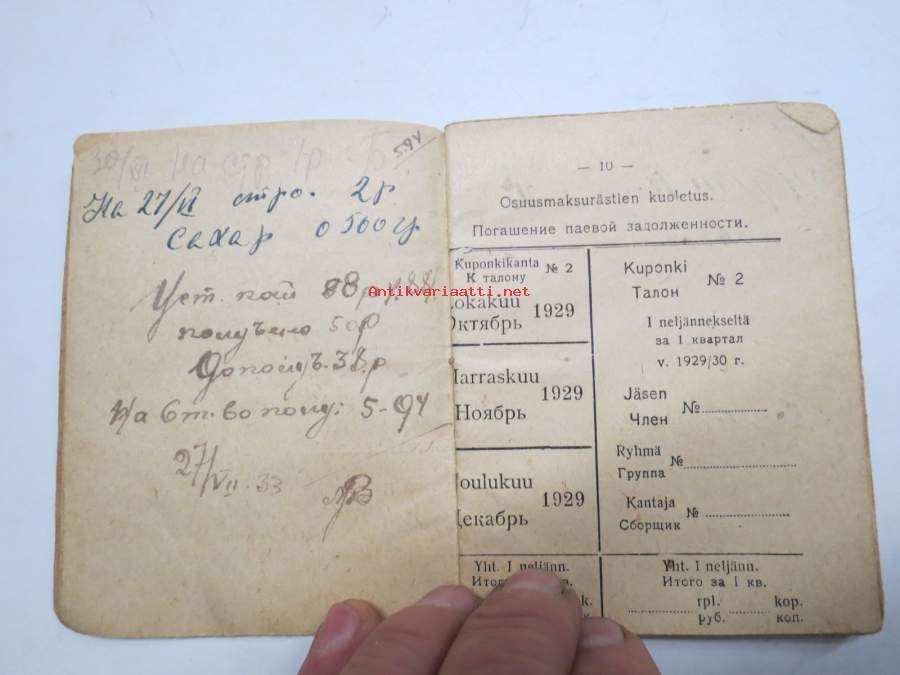 30/VI на стр 1 р
5.94
На 27/VI стро. 2р
Сахар 0 500 гр
Уст. пай 88р
получено 50р
Дополуч. 38 р
На 6 т. во полу: 5-94
27/VII-33
Antikvariaatti.net
— 10 —
Osuusmaksurästien kuoletus.
Погашение паевой задолженности.
Kuponkikanta № 2
К талону
Lokakuu 1929
Октябрь
Marraskuu 1929
Ноябрь
Joulukuu 1929
Декабрь
Yht. I neljänn.
Итого
k.
Kuponki № 2
Талон
I neljännekseltä
за I квартал
v. 1929/30 г.
Jäsen №
Член
Ryhmä №
Группа
Kantaja №
Сборщик
Yht. I neljänn.
Итого за I кв.
rpl. kop.
руб. коп.